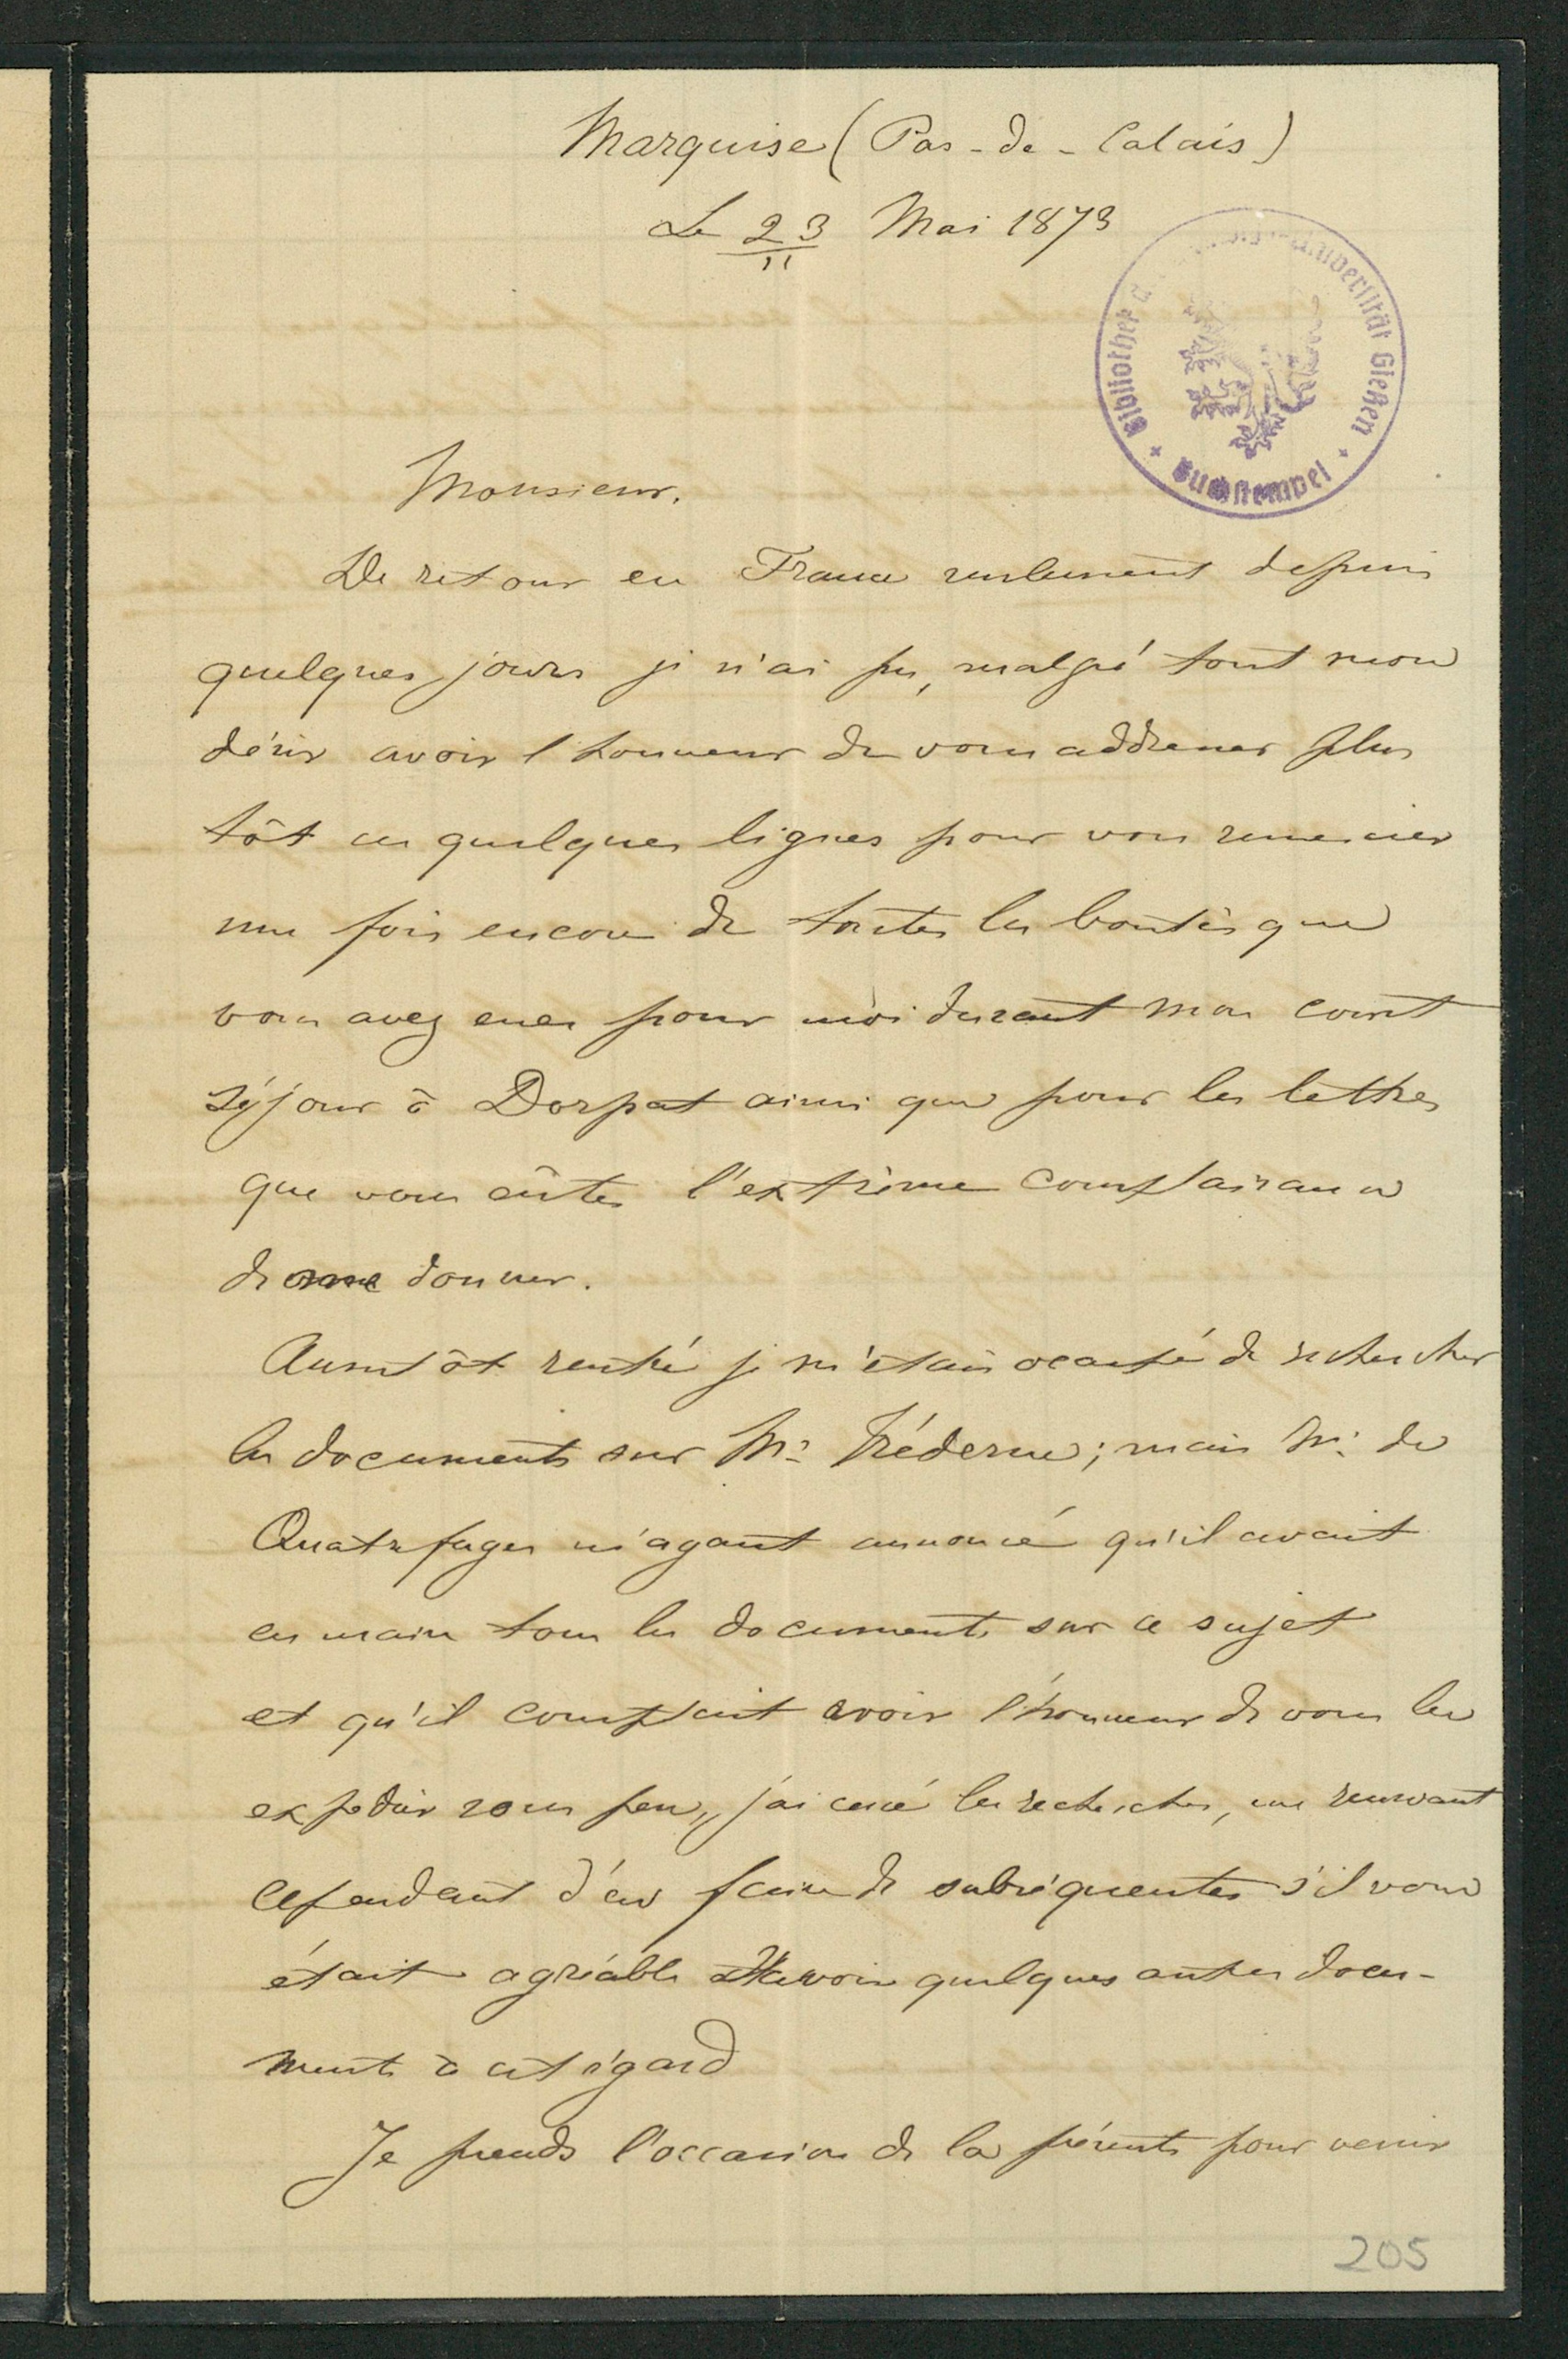 Marquise (Pas-de-Calais)
Le 23 Mai 1873
Bibliothek Universität Gießen
Buchstempel
Monsieur,
De retour en France seulement depuis
quelques jours je n'ai pu, malgré tout mon
désir avoir l'honneur de vous addresser plus
tôt ces quelques lignes pour vous remercier
une fois encore de toutes les bontés que
vous avez eues pour moi durant mon court
séjour à Dorpat ainsi que pour les lettres
que vous eûtes l'extrême complaisance
de me donner.
Aussitôt rentré je m'étais occupé de rechercher
les documents sur Mr. ; mais Mr. de
Quatrefages m'ayant annoncé qu'il avait
en main tous les documents sur ce sujet
et qu'il comptait avoir l'honneur de vous les
expedier sous peu, j'ai cessé les recherches, me reservant
cependant d'en faire de subséquentes s'il vous
était agréable d'avoir quelques autres docu-
ments à cet égard
Je prends l'occasion de la présente pour venir
205